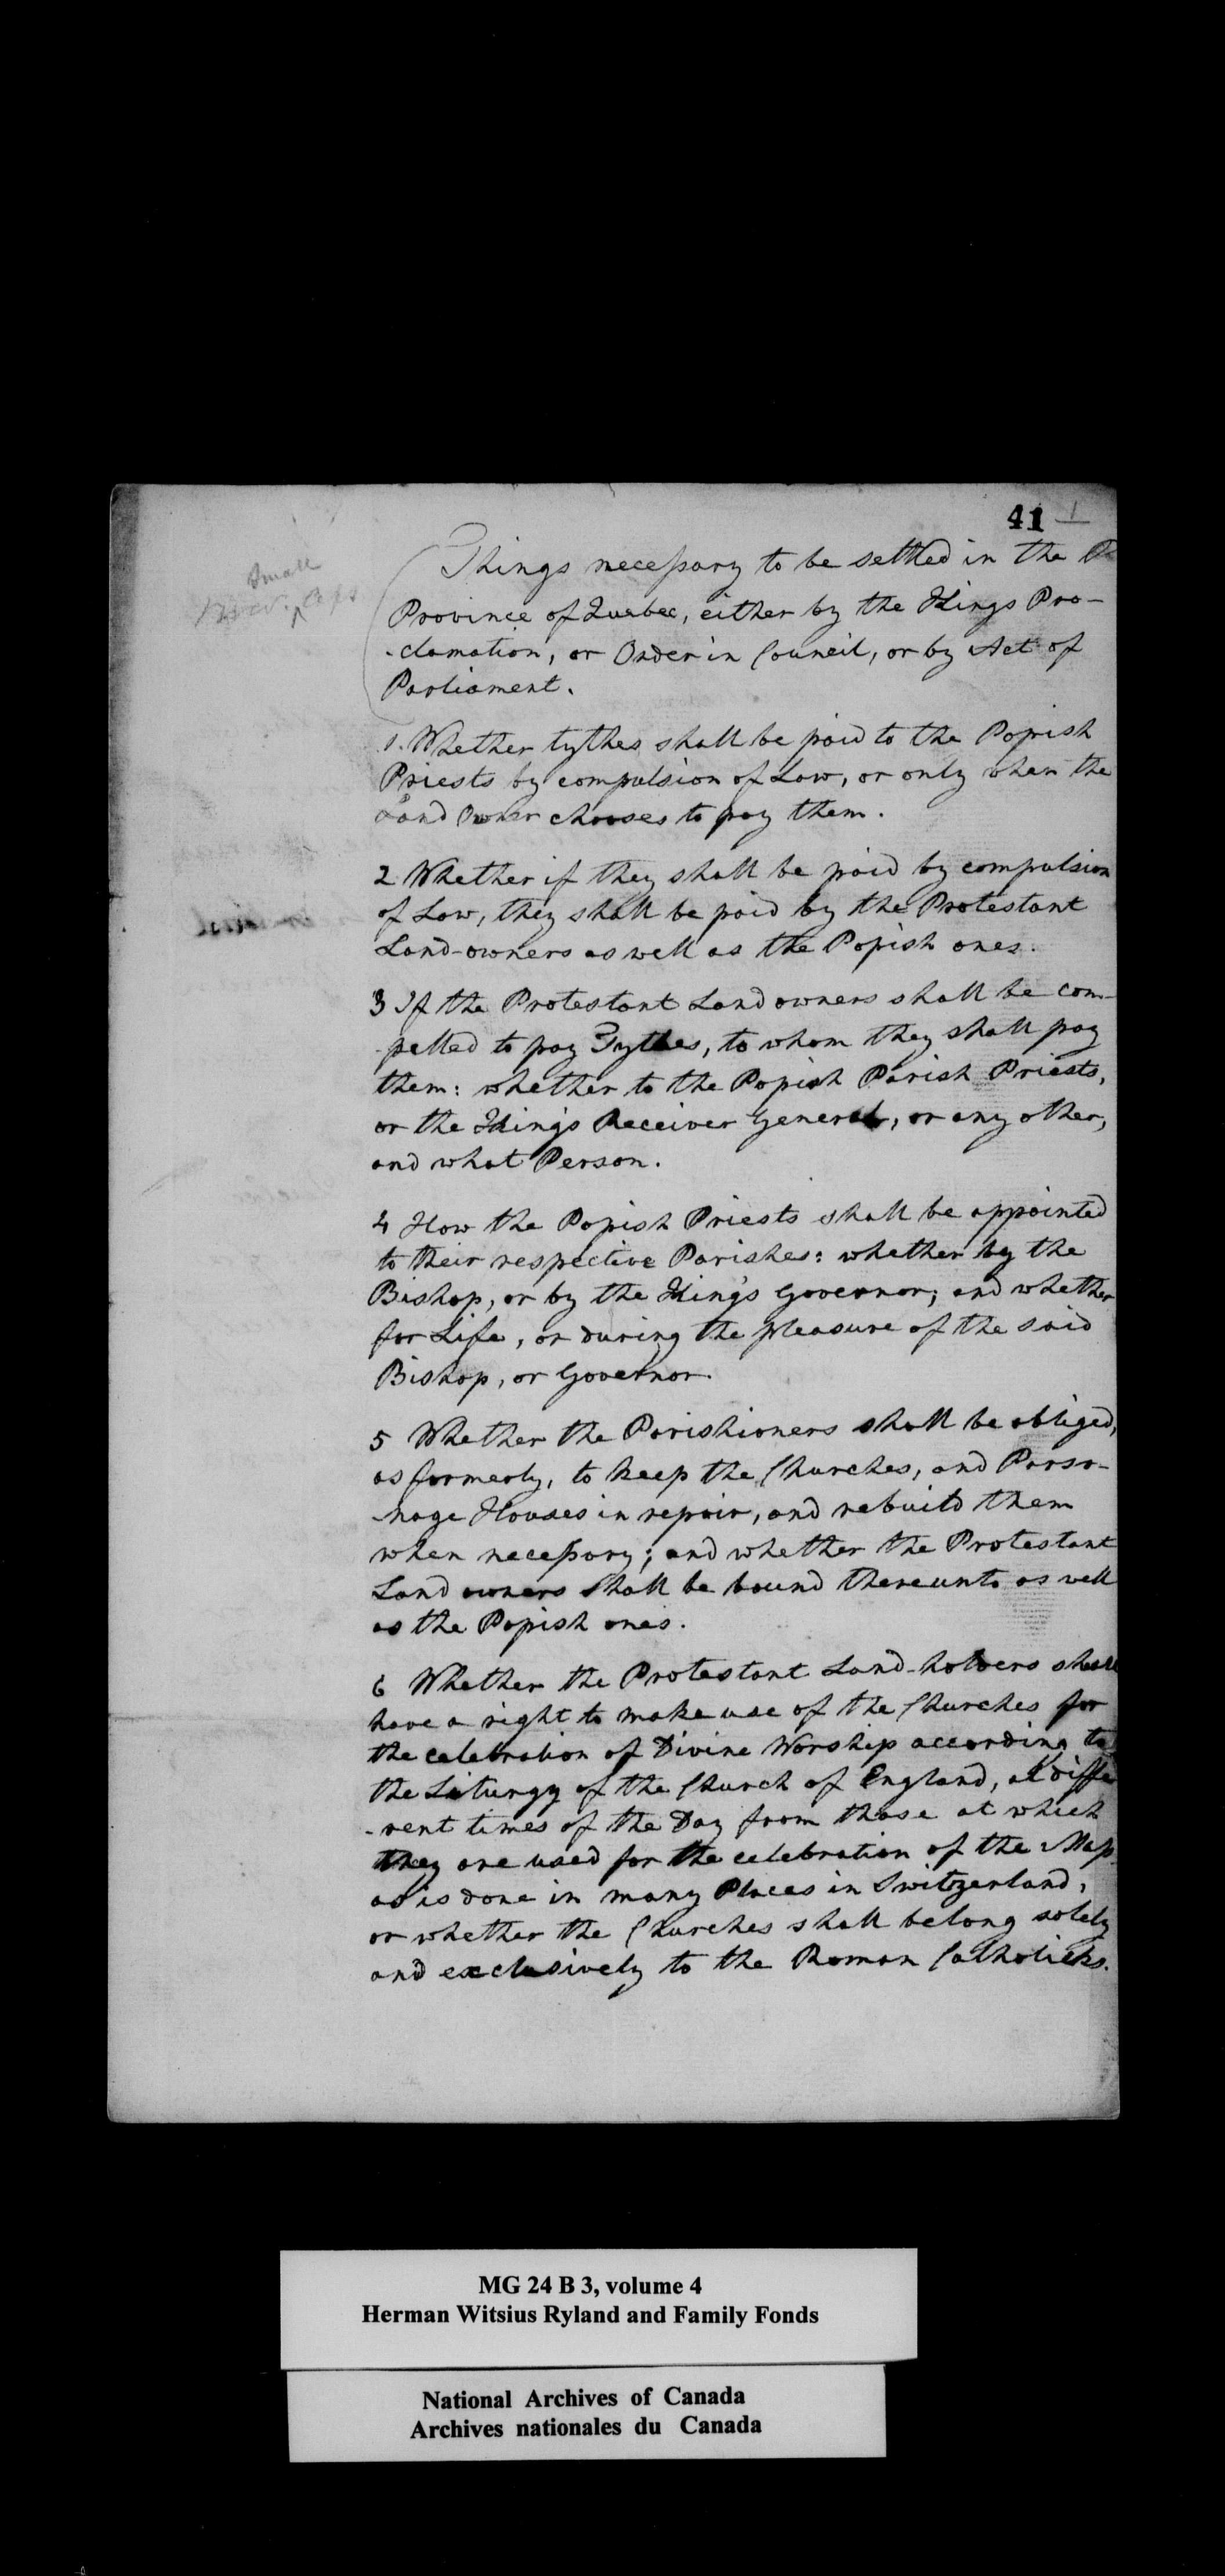 41 1
Small
Caps
Things necessary to be settled in the
Province of Quebec, either by the Kings Pro-
-clamation, or Order in Council, or by Act of
Parliament.
1. Whether tythes shall be paid to the Popish
Priests by compulsion of Law, or only when the
Land Owner chooses to pay them.
2 Whether if they shall be paid by compulsion
of Law, they shall be paid by the Protestant
Land-owners as well as the Popish ones.
3 If the Protestant Land owners shall be com-
-pelled to pay Tythes, to whom they shall pay
them: whether to the Popish Parish Priests,
or the King's Receiver General, or any other,
and what Person.
4 How the Popish Priests shall be appointed
to their respective Parishes: whether by the
Bishop, or by the King's Governor; and whether
for Life, or during the pleasure of the said
Bishop, or Governor.
5 Whether the Parishioners shall be obliged,
as formerly, to keep the Churches, and Parso-
-nage Houses in repair, and rebuild them
when necessary; and whether the Protestant
Land owners shall be bound thereunto as well
as the Popish ones.
6 Whether the Protestant Land-holders shall
have a right to make use of the Churches for
the celebration of Divine Worship according to
the Liturgy of the Church of England, at diffe
-rent times of the Day from those at which
they are used for the celebration of the Mass
as is done in many Places in Switzerland,
or whether the Churches shall belong solely
and exclusively to the Roman Catholicks.
MG 24 B 3, volume 4
Herman Witsius Ryland and Family Fonds
National Archives of Canada
Archives nationales du Canada